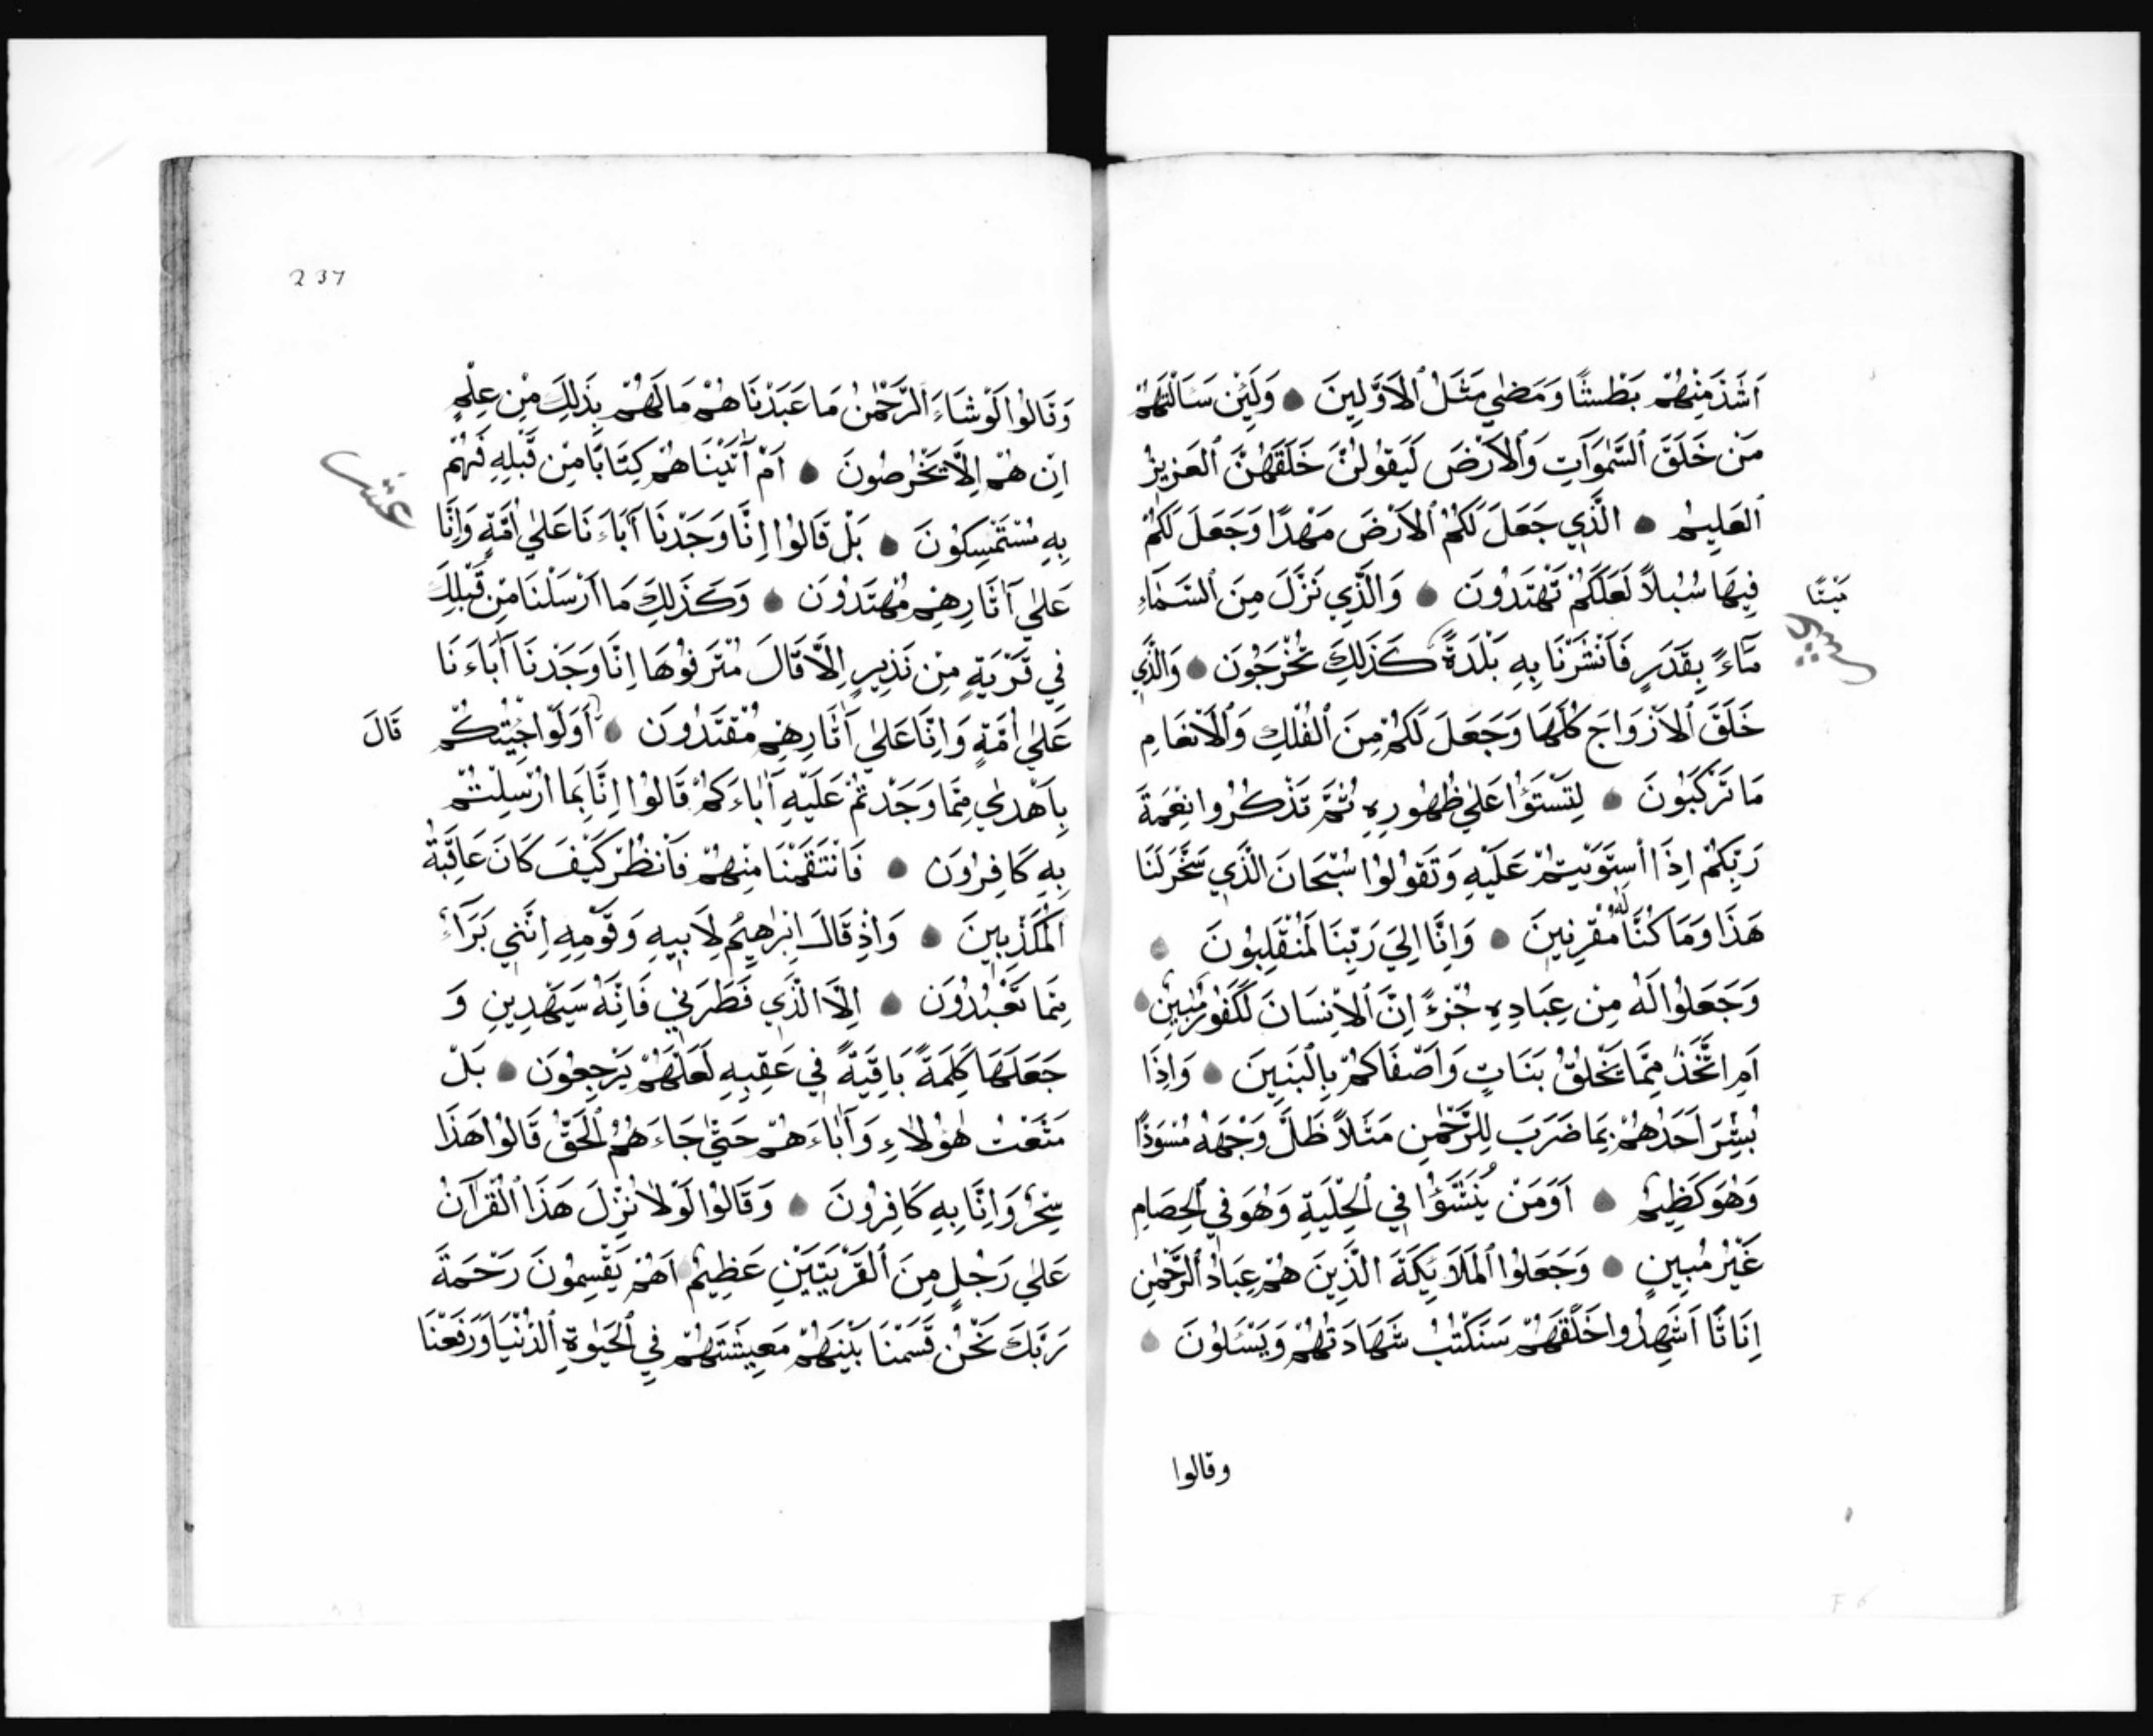 اَشَدَّ مِنْهُمْ بَطْشًا وَمَضٰي مَثَلُ الْاَوَّلِينَ وَلَئِنْ سَاَلْتَهُمْ
مَنْ خَلَقَ السَّمٰوَاتِ وَالْاَرْضَ لَيَقُولُنَّ خَلَقَهُنَّ الْعَزِيزُ
الْعَلِيمُ الَّذِي جَعَلَ لَكُمُ الْاَرْضَ مَهْدًا وَجَعَلَ لَكُمْ
فِيهَا سُبُلًا لَعَلَّكُمْ تَهْتَدُونَ وَالَّذِي نَزَّلَ مِنَ السَّمَاءِ
مَاءً بِقَدَرٍ فَاَنْشَرْنَا بِهِ بَلْدَةً كَذَلِكَ تُخْرَجُونَ وَالَّذِي
مَيْتًا
خَلَقَ الْاَزْوَاجَ كُلَّهَا وَجَعَلَ لَكُمْ مِنَ الْفُلْكِ وَالْاَنْعَامِ
مَا تَرْكَبُونَ لِتَسْتَوُا عَلٰي ظُهُورِهِ ثُمَّ تَذْكُرُوا نِعْمَةَ
رَبِّكُمْ اِذَا اسْتَوَيْتُمْ عَلَيْهِ وَتَقُولُوا سُبْحَانَ الَّذِي سَخَّرَ لَنَا
هَذَا وَمَا كُنَّا لَهُ مُقْرِنِينَ وَاِنَّا اِلَيَ رَبِّنَا لَمُنْقَلِبُونَ
وَجَعَلُوا لَهُ مِنْ عِبَادِهِ جُزْءً اِنَّ الْاِنْسَانَ لَكَفُورٌ مُبِينٌ
اَمِ اتَّخَذَ مِمَّا يَخْلُقُ بَنَاتٍ وَاَصْفَاكُمْ بِالْبَنِينَ وَاِذَا
بُشِّرَ اَحَدُهُمْ بِمَا ضَرَبَ لِلرَّحْمٰنِ مَثَلًا ظَلَّ وَجْهُهُ مُسْوَدًّا
وَهُوَ كَظِيمٌ اَوَمَنْ يُنَشَّؤُا فِي الْحِلْيَةِ وَهُوَ فِي الْخِصَامِ
غَيْرُ مُبِينٍ وَجَعَلُوا الْمَلَائِكَةَ الَّذِينَ هُمْ عِبَادُ الرَّحْمٰنِ
اِنَاثًا اَشَهِدُوا خَلْقَهُمْ سَتُكْتَبُ شَهَادَتُهُمْ وَيُسْئَلُونَ
وقالوا
237
وَقَالُوا لَوْ شَاءَ الرَّحْمٰنُ مَا عَبَدْنَاهُمْ مَا لَهُمْ بِذَلِكَ مِنْ عِلْمٍ
اِنْ هُمْ اِلَّا يَخْرُصُونَ اَمْ آتَيْنَاهُمْ كِتَابًا مِنْ قَبْلِهِ فَهُمْ
عشر
بِهِ مُسْتَمْسِكُونَ بَلْ قَالُوا اِنَّا وَجَدْنَا آبَاءَنَا عَلٰي اُمَّةٍ وَاِنَّا
عَلٰي آثَارِهِمْ مُهْتَدُونَ وَكَذَلِكَ مَا اَرْسَلْنَا مِنْ قَبْلِكَ
فِي قَرْيَةٍ مِنْ نَذِيرٍ اِلَّا قَالَ مُتْرَفُوهَا اِنَّا وَجَدْنَا آبَاءَنَا
عَلٰي اُمَّةٍ وَاِنَّا عَلٰي آثَارِهِمْ مُقْتَدُونَ اَوَلَوْ جِئْتُكُمْ
قَالَ
بِاَهْدٰي مِمَّا وَجَدْتُمْ عَلَيْهِ آبَاءَكُمْ قَالُوا اِنَّا بِمَا اُرْسِلْتُمْ
بِهِ كَافِرُونَ فَانْتَقَمْنَا مِنْهُمْ فَانْظُرْ كَيْفَ كَانَ عَاقِبَةُ
الْمُكَذِّبِينَ وَاِذْ قَالَ اِبْرٰهِيمُ لِاَبِيهِ وَقَوْمِهِ اِنَّنِي بَرَاءٌ
مِمَّا تَعْبُدُونَ اِلَّا الَّذِي فَطَرَنِي فَاِنَّهُ سَيَهْدِينِ وَ
جَعَلَهَا كَلِمَةً بَاقِيَةً فِي عَقِبِهِ لَعَلَّهُمْ يَرْجِعُونَ بَلْ
مَتَّعْتُ هٰؤُلَاءِ وَآبَاءَهُمْ حَتّٰي جَاءَهُمُ الْحَقُّ قَالُوا هَذَا
سِحْرٌ وَاِنَّا بِهِ كَافِرُونَ وَقَالُوا لَوْلَا نُزِّلَ هَذَا الْقُرْآنُ
عَلٰي رَجُلٍ مِنَ الْقَرْيَتَيْنِ عَظِيمٌ اَهُمْ يَقْسِمُونَ رَحْمَةَ
رَبِّكَ نَحْنُ قَسَمْنَا بَيْنَهُمْ مَعِيشَتَهُمْ فِي الْحَيٰوةِ الدُّنْيَا وَرَفَعْنَا